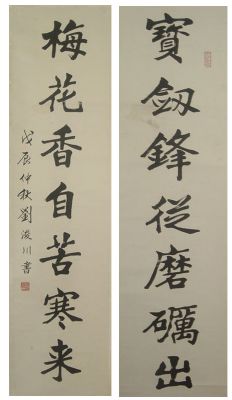 寶劔鋒從磨礪出
梅花香自苦寒来
戊辰仲秋劉浚川書